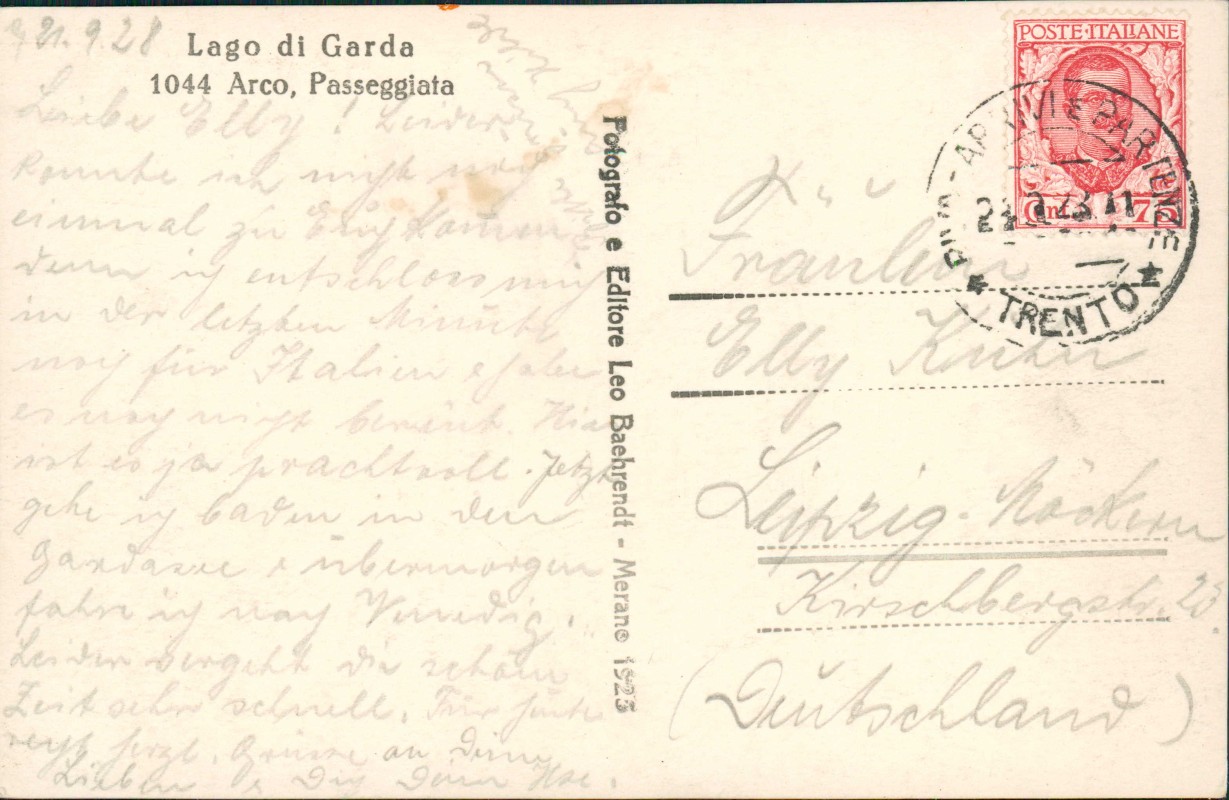 21.9.28
Lago di Garda
1044 Arco, Passeggiata
Liebe Elly! Leider
konnte ich nicht noch
einmal zu Euch kommen
denn ich entschloss mich
in der letzten Minute
noch für Italien & habe
es noch nicht bereut. Hier
ist es ja prachtvoll. Jetzt
gehe ich baden in den
Gardasee & übermorgen
fahre ich nach Venedig.
Leider vergeht die schöne
Zeit sehr schnell. Für heute
recht herzl. Grüsse an Deine
Lieben & Dich Dein
Fotografo e Editore Leo Baehrendt - Merano 1923
POSTE ITALIANE
Cmi 75
RIVA - ARRIVI E PARTENZE
TRENTO
Fräulein
Elly Kuhn
Leipzig-Möckern
Kirschbergstr. 23.
(Deutschland)